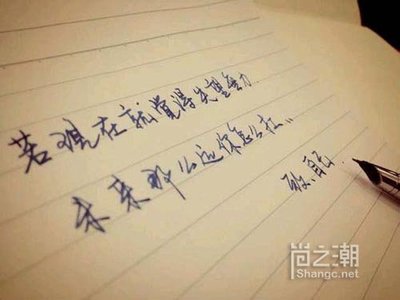 若现在就觉得失望无力
未来那么远你怎么扛..
尚之潮
Shangc.net